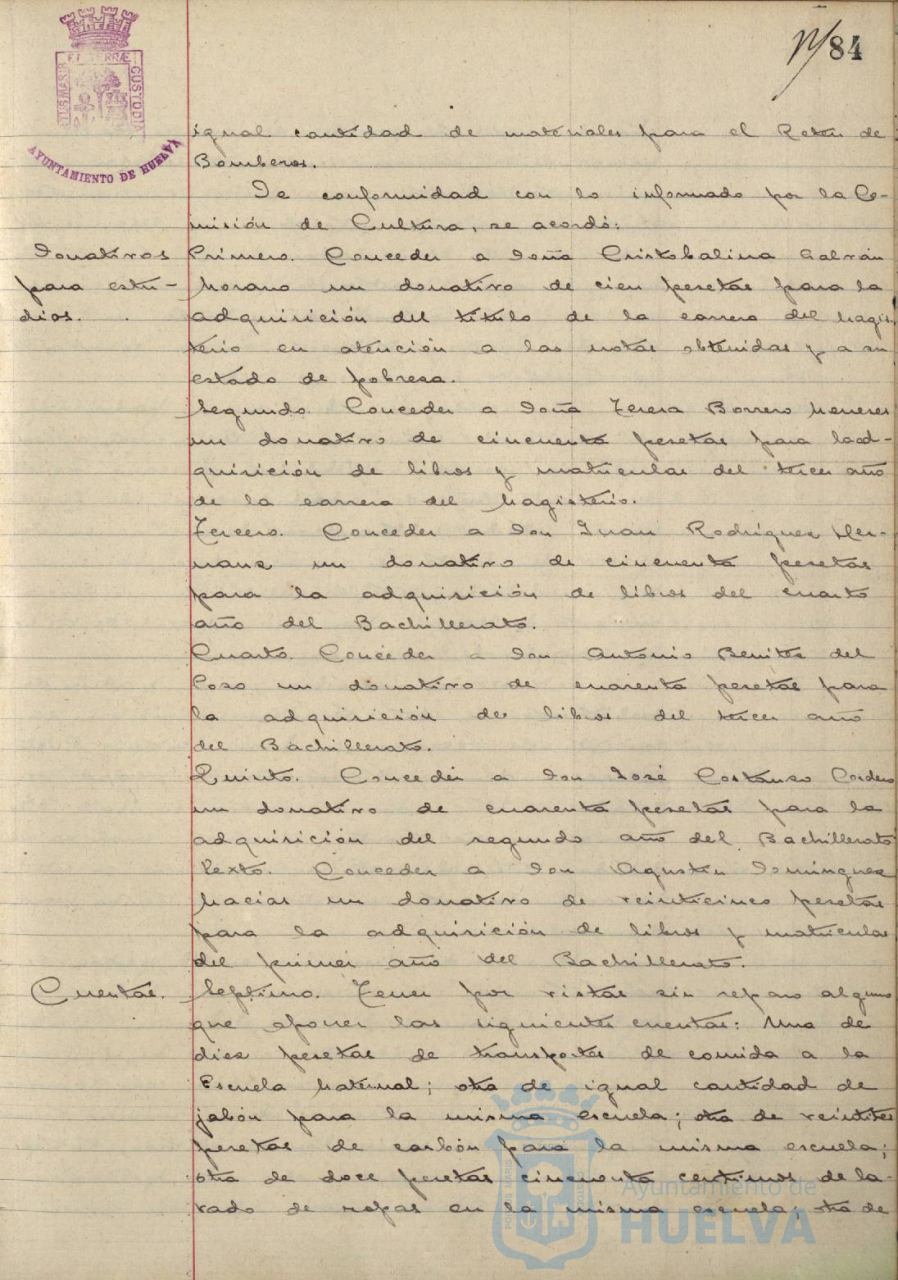 84
PORTUS MARIS ET TERRÆ CUSTODIA
AYUNTAMIENTO DE HUELVA
igual cantidad de materiales para el Retén de
Bomberos.
De conformidad con lo informado por la Co-
misión de Cultura, se acordó:
Donativos
para estu-
dios.
Primero. Conceder a Doña Cristobalina Galván
Morano un donativo de cien pesetas para la
adquisición del título de la carrera del Magis-
terio en atención a las notas obtenidas y a su
estado de pobresa.
Segundo. Conceder a Doña Teresa Borrero Meneses
un donativo de cincuenta pesetas para la ad-
quisición de libros y matriculas del tercer año
de la carrera del Magisterio.
Tercero. Conceder a Don Juan Rodríguez Her-
nanz un donativo de cincuenta pesetas
para la adquisición de libros del cuarto
año del Bachillerato.
Cuarto. Conceder a Don Antonio Benitez del
Pozo un donativo de cuarenta pesetas para
la adquisición de libros del tercer año
del Bachillerato.
Quinto. Conceder a Don José Costanso Cordero
un donativo de cuarenta pesetas para la
adquisición del segundo año del Bachillerato
Sexto. Conceder a Don Agustín Domínguez
Macias un donativo de veinticinco pesetas
para la adquisición de libros y matriculas
del primer año del Bachillerato.
Cuentas.
Septimo. Tener por vistas sin reparo alguno
que oponer las siguientes cuentas: Una de
diez pesetas de transportes de comida a la
Escuela Maternal; otra de igual cantidad de
jabón para la misma escuela; otra de veintitres
pesetas de carbón para la misma escuela;
otra de doce pesetas cincuenta centimos de la-
vado de ropas en la misma escuela; otra de
Ayuntamiento de
HUELVA